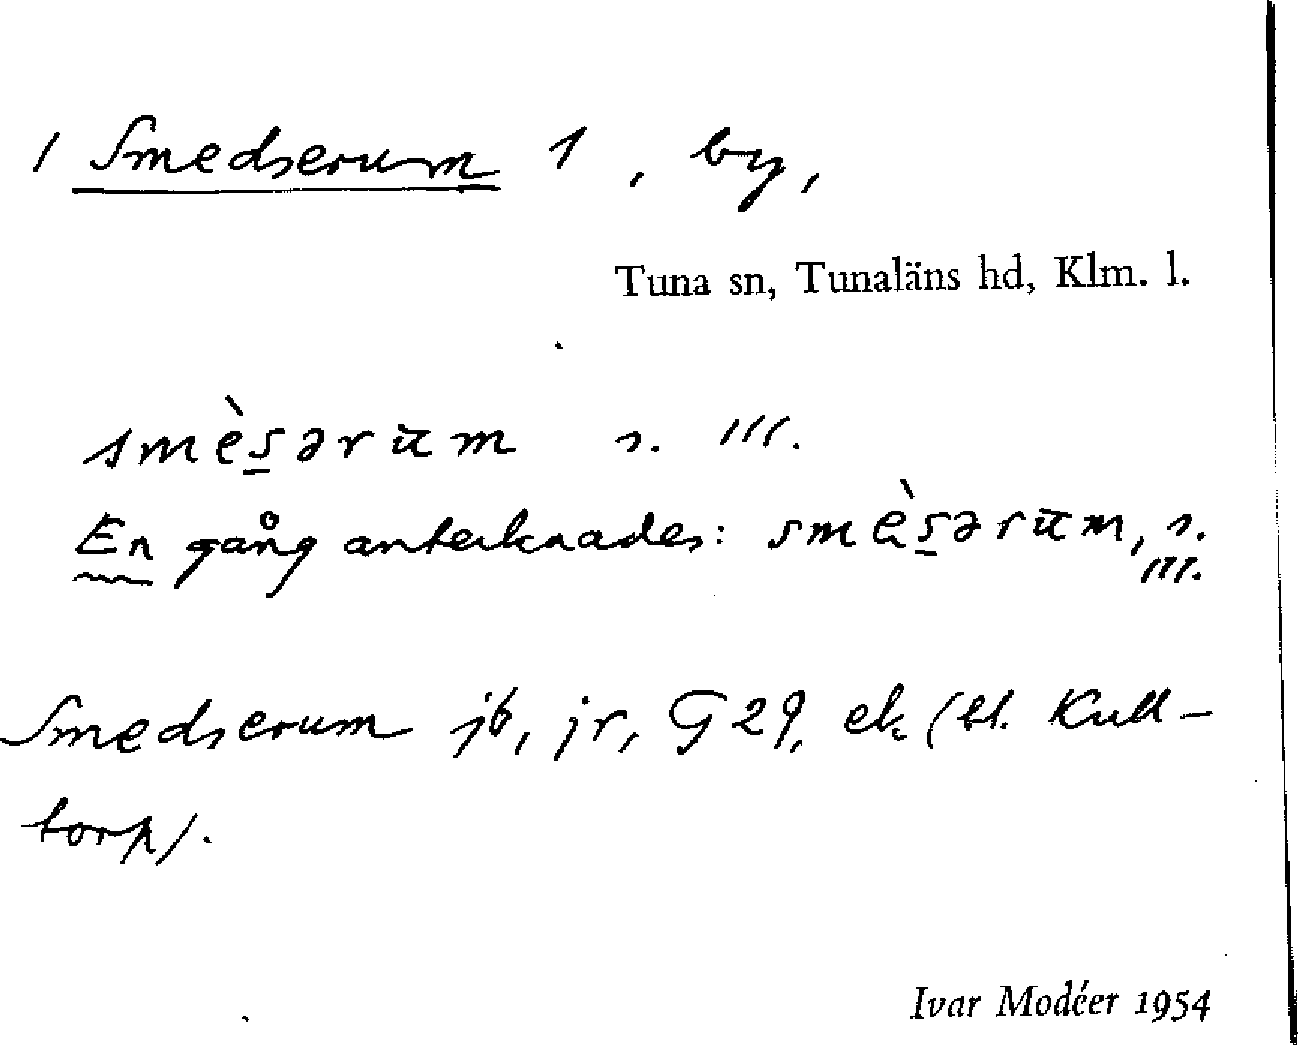 / Smedserum 1, by,
Tuna sn, Tunaläns hd, Klm. l.
smès̲ərūm s. ///.
En gång antecknades: smès̲ərūm, s.
///.
Smedserum jb, jr, G 29, ek (bl. Kull-
torp/.
Ivar Modéer 1954